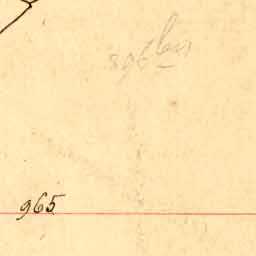 896 bis
965